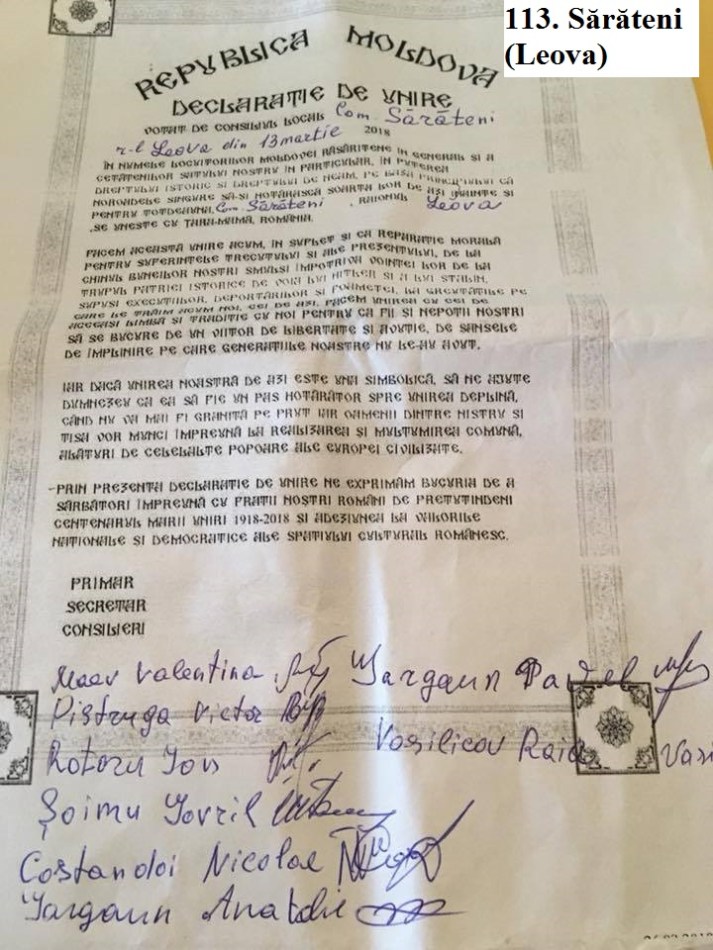 113. Sărăteni
(Leova)
REPUBLICA MOLDOVA
DECLARATIE DE UNIRE
VOTAT DE CONSILIUL LOCAL Com. Sărăteni
r-l Leova din 13 martie 2018
ÎN NUMELE LOCUITORILOR MOLDOVEI RĂSĂRITENE ÎN GENERAL SI A
CETĂTENILOR SATULUI NOSTRU ÎN PARTICULAR, ÎN PUTEREA
DREPTULUI ISTORIC SI DREPTULUI DE NEAM, PE BAZA PRINCIPIULUI CĂ
NOROADELE SINGURE SĂ-SI HOTĂRASCĂ SOARTA LOR DE AZI ÎNAINTE SI
PENTRU TOTDEAUNA, Com Sărăteni , RAIONUL Leova
,SE UNESTE CU TARA-MUMA, ROMÂNIA.
FACEM ACEASTĂ UNIRE ACUM, ÎN SUFLET SI CA REPARATIE MORALĂ
PENTRU SUFERINTELE TRECUTULUI SI ALE PREZENTULUI, DE LA
CHINUL BUNEILOR NOSTRI SMULSI ÎMPOTRIVA VOINTEI LOR DE LA
TRUPUL PATRIEI ISTORICE DE VOIA LUI HITLER SI A LUI STALIN,
SUPUSI EXECUTIILOR, DEPORTĂRILOR SI FOAMETEI, LA GREUTĂTILE PE
CARE LE TRĂIM ACUM NOI, CEI DE AZI. FACEM UNIREA CU CEI DE
ACEEASI LIMBĂ SI TRADITIE CU NOI PENTRU CA FII SI NEPOTII NOSTRI
SĂ SE BUCURE DE UN VIITOR DE LIBERTATE SI AVUTIE, DE SANSELE
DE ÎMPLINIRE PE CARE GENERATIILE NOASTRE NU LE-AU AVUT.
IAR DACĂ UNIREA NOASTRĂ DE AZI ESTE UNA SIMBOLICĂ, SĂ NE AJUTE
DUMNEZEU CA EA SĂ FIE UN PAS HOTĂRÂTOR SPRE UNIREA DEPLINĂ,
CÂND NU VA MAI FI GRANITĂ PE PRUT IAR OAMENII DINTRE NISTRU SI
TISA VOR MUNCI ÎMPREUNĂ LA REALIZAREA SI MULTUMIREA COMUNĂ,
ALĂTURI DE CELELALTE POPOARE ALE EUROPEI CIVILIZATE.
-PRIN PREZENTA DECLARATIE DE UNIRE NE EXPRIMĂM BUCURIA DE A
SĂRBĂTORI ÎMPREUNĂ CU FRATII NOSTRI ROMÂNI DE PRETUTINDENI
CENTENARUL MARII UNIRI 1918-2018 SI ADEZIUNEA LA VALORILE
NATIONALE SI DEMOCRATICE ALE SPATIULUI CULTURAL ROMÂNESC.
PRIMAR
SECRETAR
CONSILIERI
Maev Valentina Iargaun Pavel
Pistruga Victor
Rotaru Ion Vasilicov Raia Vasi
Șoimu Iovril
Costandoi Nicolae
Iargaun Anatolie